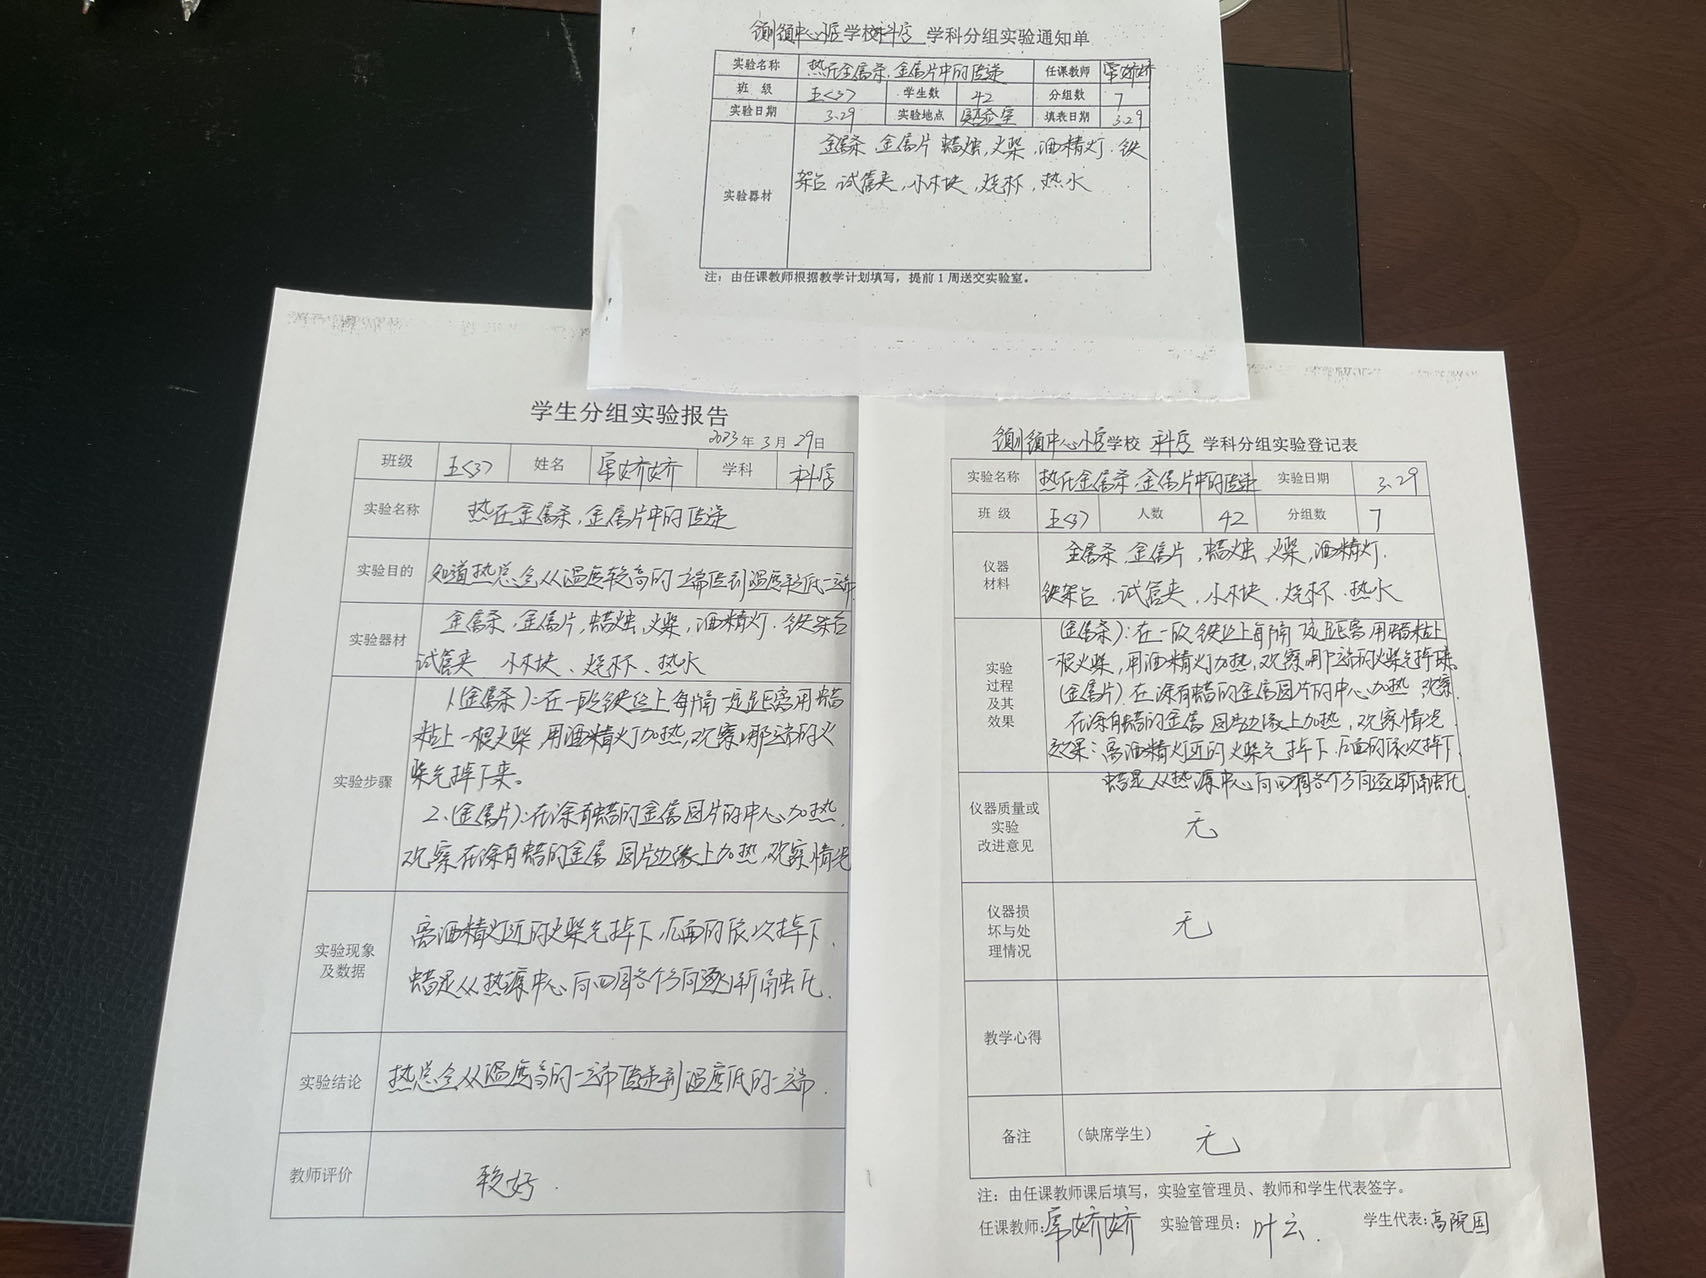 镇中心小学校科学 学科分组实验通知单
实验名称 热在金属条、金属片中的传递 任课教师 娇娇
班 级 五<3> 学生数 42 分组数 7
实验日期 3.29 实验地点 实验室 填表日期 3.29
实验器材
金属条、金属片 蜡烛,火柴,酒精灯、铁
架台、试管夹、小木块、烧杯、热水
注：由任课教师根据教学计划填写，提前1周送交实验室。
学生分组实验报告
2023年3月29日
班级 五<3> 姓名 娇娇 学科 科学
实验名称 热在金属条,金属片中的传递
实验目的 知道热总会从温度较高的一端传到温度较低一端
实验器材 金属条,金属片,蜡烛,火柴,酒精灯、铁架台
试管夹 小木块、烧杯、热水
实验步骤
1、(金属条):在一段铁丝上每隔一定距离用蜡
粘上一根火柴,用酒精灯加热,观察哪端的火
柴先掉下来。
2、(金属片):在涂有蜡的金属圆片的中心加热,
观察在涂有蜡的金属圆片边缘上加热,观察情况
实验现象
及数据
离酒精灯近的火柴先掉下,后面的依次掉下、
蜡是从热源中心向四周各个方向逐渐融化.
实验结论 热总会从温度高的一端传递到温度低的一端.
教师评价 较好.
镇中心小学校 科学 学科分组实验登记表
实验名称 热在金属条、金属片中的传递 实验日期 3.29
班 级 五<3> 人数 42 分组数 7
仪器
材料
金属条、金属片,蜡烛,火柴,酒精灯.
铁架台、试管夹、小木块、烧杯、热水
实验
过程
及其
效果
(金属条):在一段铁丝上每隔一定距离用蜡粘上
一根火柴,用酒精灯加热,观察哪端的火柴先掉下来。
(金属片)在涂有蜡的金属圆片的中心加热 观察.
在涂有蜡的金属圆片边缘上加热,观察情况.
效果:离酒精灯近的火柴先掉下.后面的依次掉下.
蜡是从热源中心向四周各个方向逐渐融化.
仪器质量或
实验
改进意见
无
仪器损
坏与处
理情况
无
教学心得
备注 (缺席学生) 无
注：由任课教师课后填写，实验室管理员、教师和学生代表签字。
任课教师: 娇娇 实验管理员: 叶云. 学生代表: 高院国